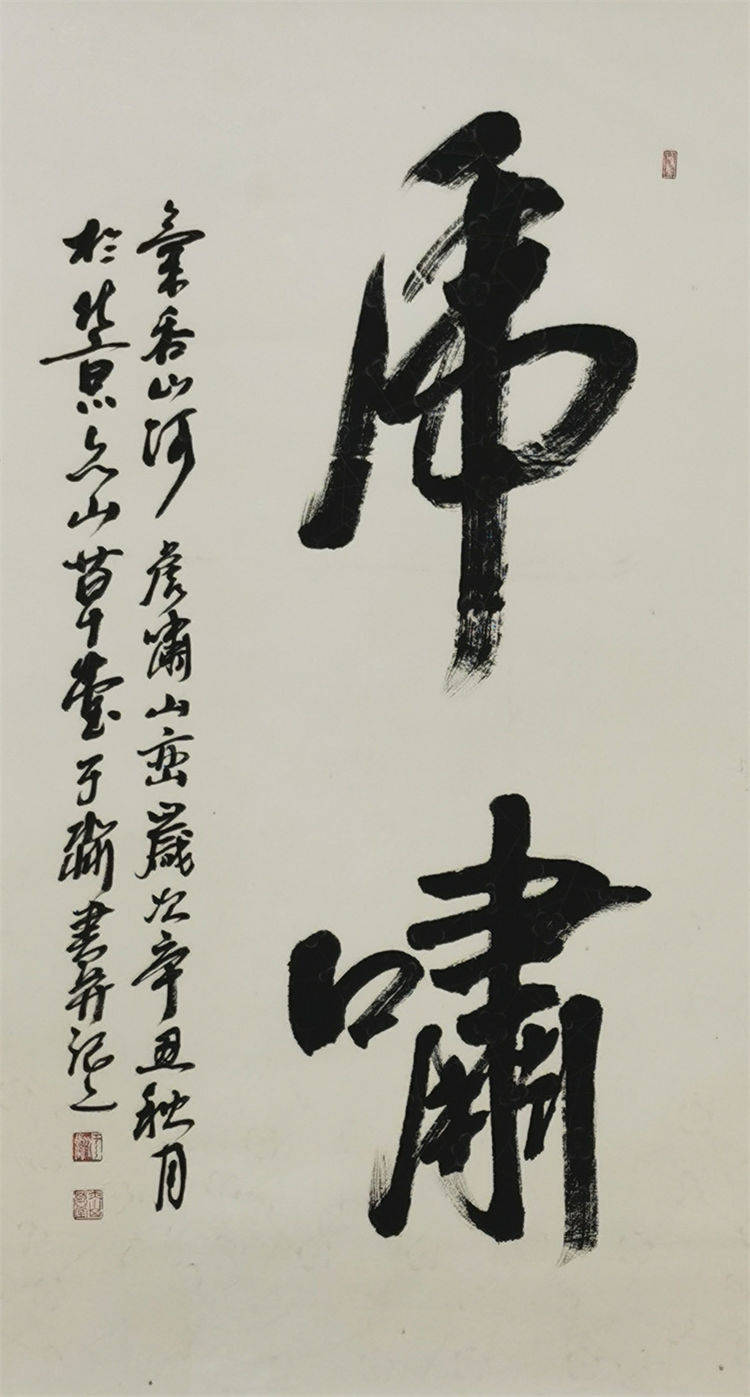 虎嘯
氣吞山河 虎嘯山巒歲次辛丑秋月
於山草堂于書并記之